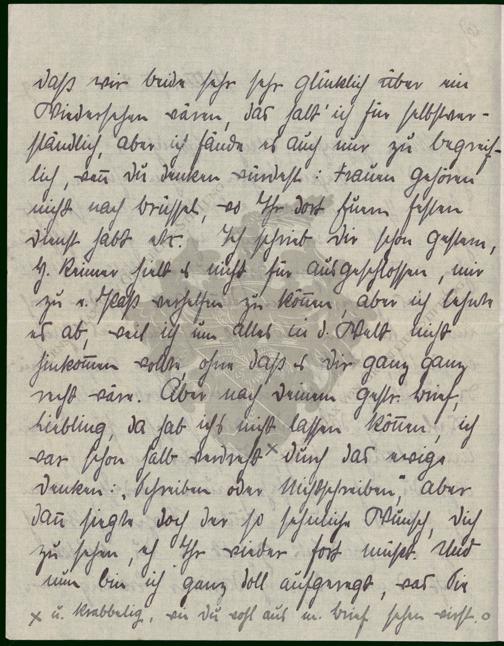 daß wir beide sehr sehr glücklich über ein
Wiedersehen wären, das halt' ich für selbstver-
ständlich, aber ich fände es auch nur zu begreif-
lich, wenn du denken würdest: Frauen gehören
nicht nach Brüssel, wo Ihr dort Euern festen
Dienst habt etc. Ich schrieb dir schon gestern,
H. Renner hielt es nicht für ausgeschlossen, mir
zu e. Paß verhelfen zu können, aber ich lehnte
es ab, weil ich um alles in d. Welt nicht
hinkommen wollte, ohne daß es dir ganz ganz
recht wäre. Aber nach deinem gestr. Brief,
Liebling, da hab ichs nicht lassen können, ich
war schon halb verdreht x durch das ewige
Denken: "Schreiben oder Nichtschreiben", aber
dann siegte doch der so sehnliche Wunsch, dich
zu sehen, eh Ihr wieder fort müßt. Und
nun bin ich ganz doll aufgeregt, was die
x u. krabbelig, wie du wohl aus m. Brief sehen wirst.